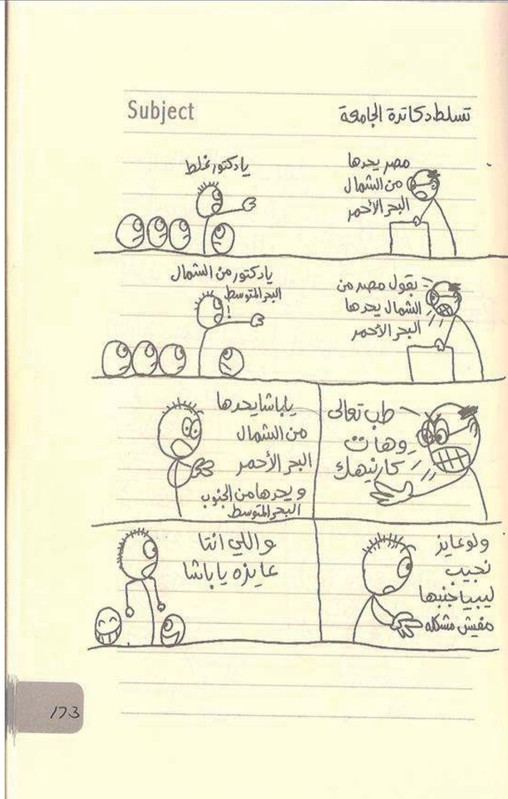 Subject
تسلط دكاترة الجامعة
مصر يحدها
من الشمال
البحر الأحمر
يا دكتور غلط
بقول مصر من
الشمال يحدها
البحر الأحمر
يا دكتور من الشمال
البحر المتوسط
!
طب تعالى
وهات
كارنيهك
يا باشا يحدها
من الشمال
البحر الأحمر
ويحدها من الجنوب
البحر المتوسط
ولو عايز
نجيب
ليبيا جنبها
مفيش مشكله
واللي انتا
عايزه يا باشا
173